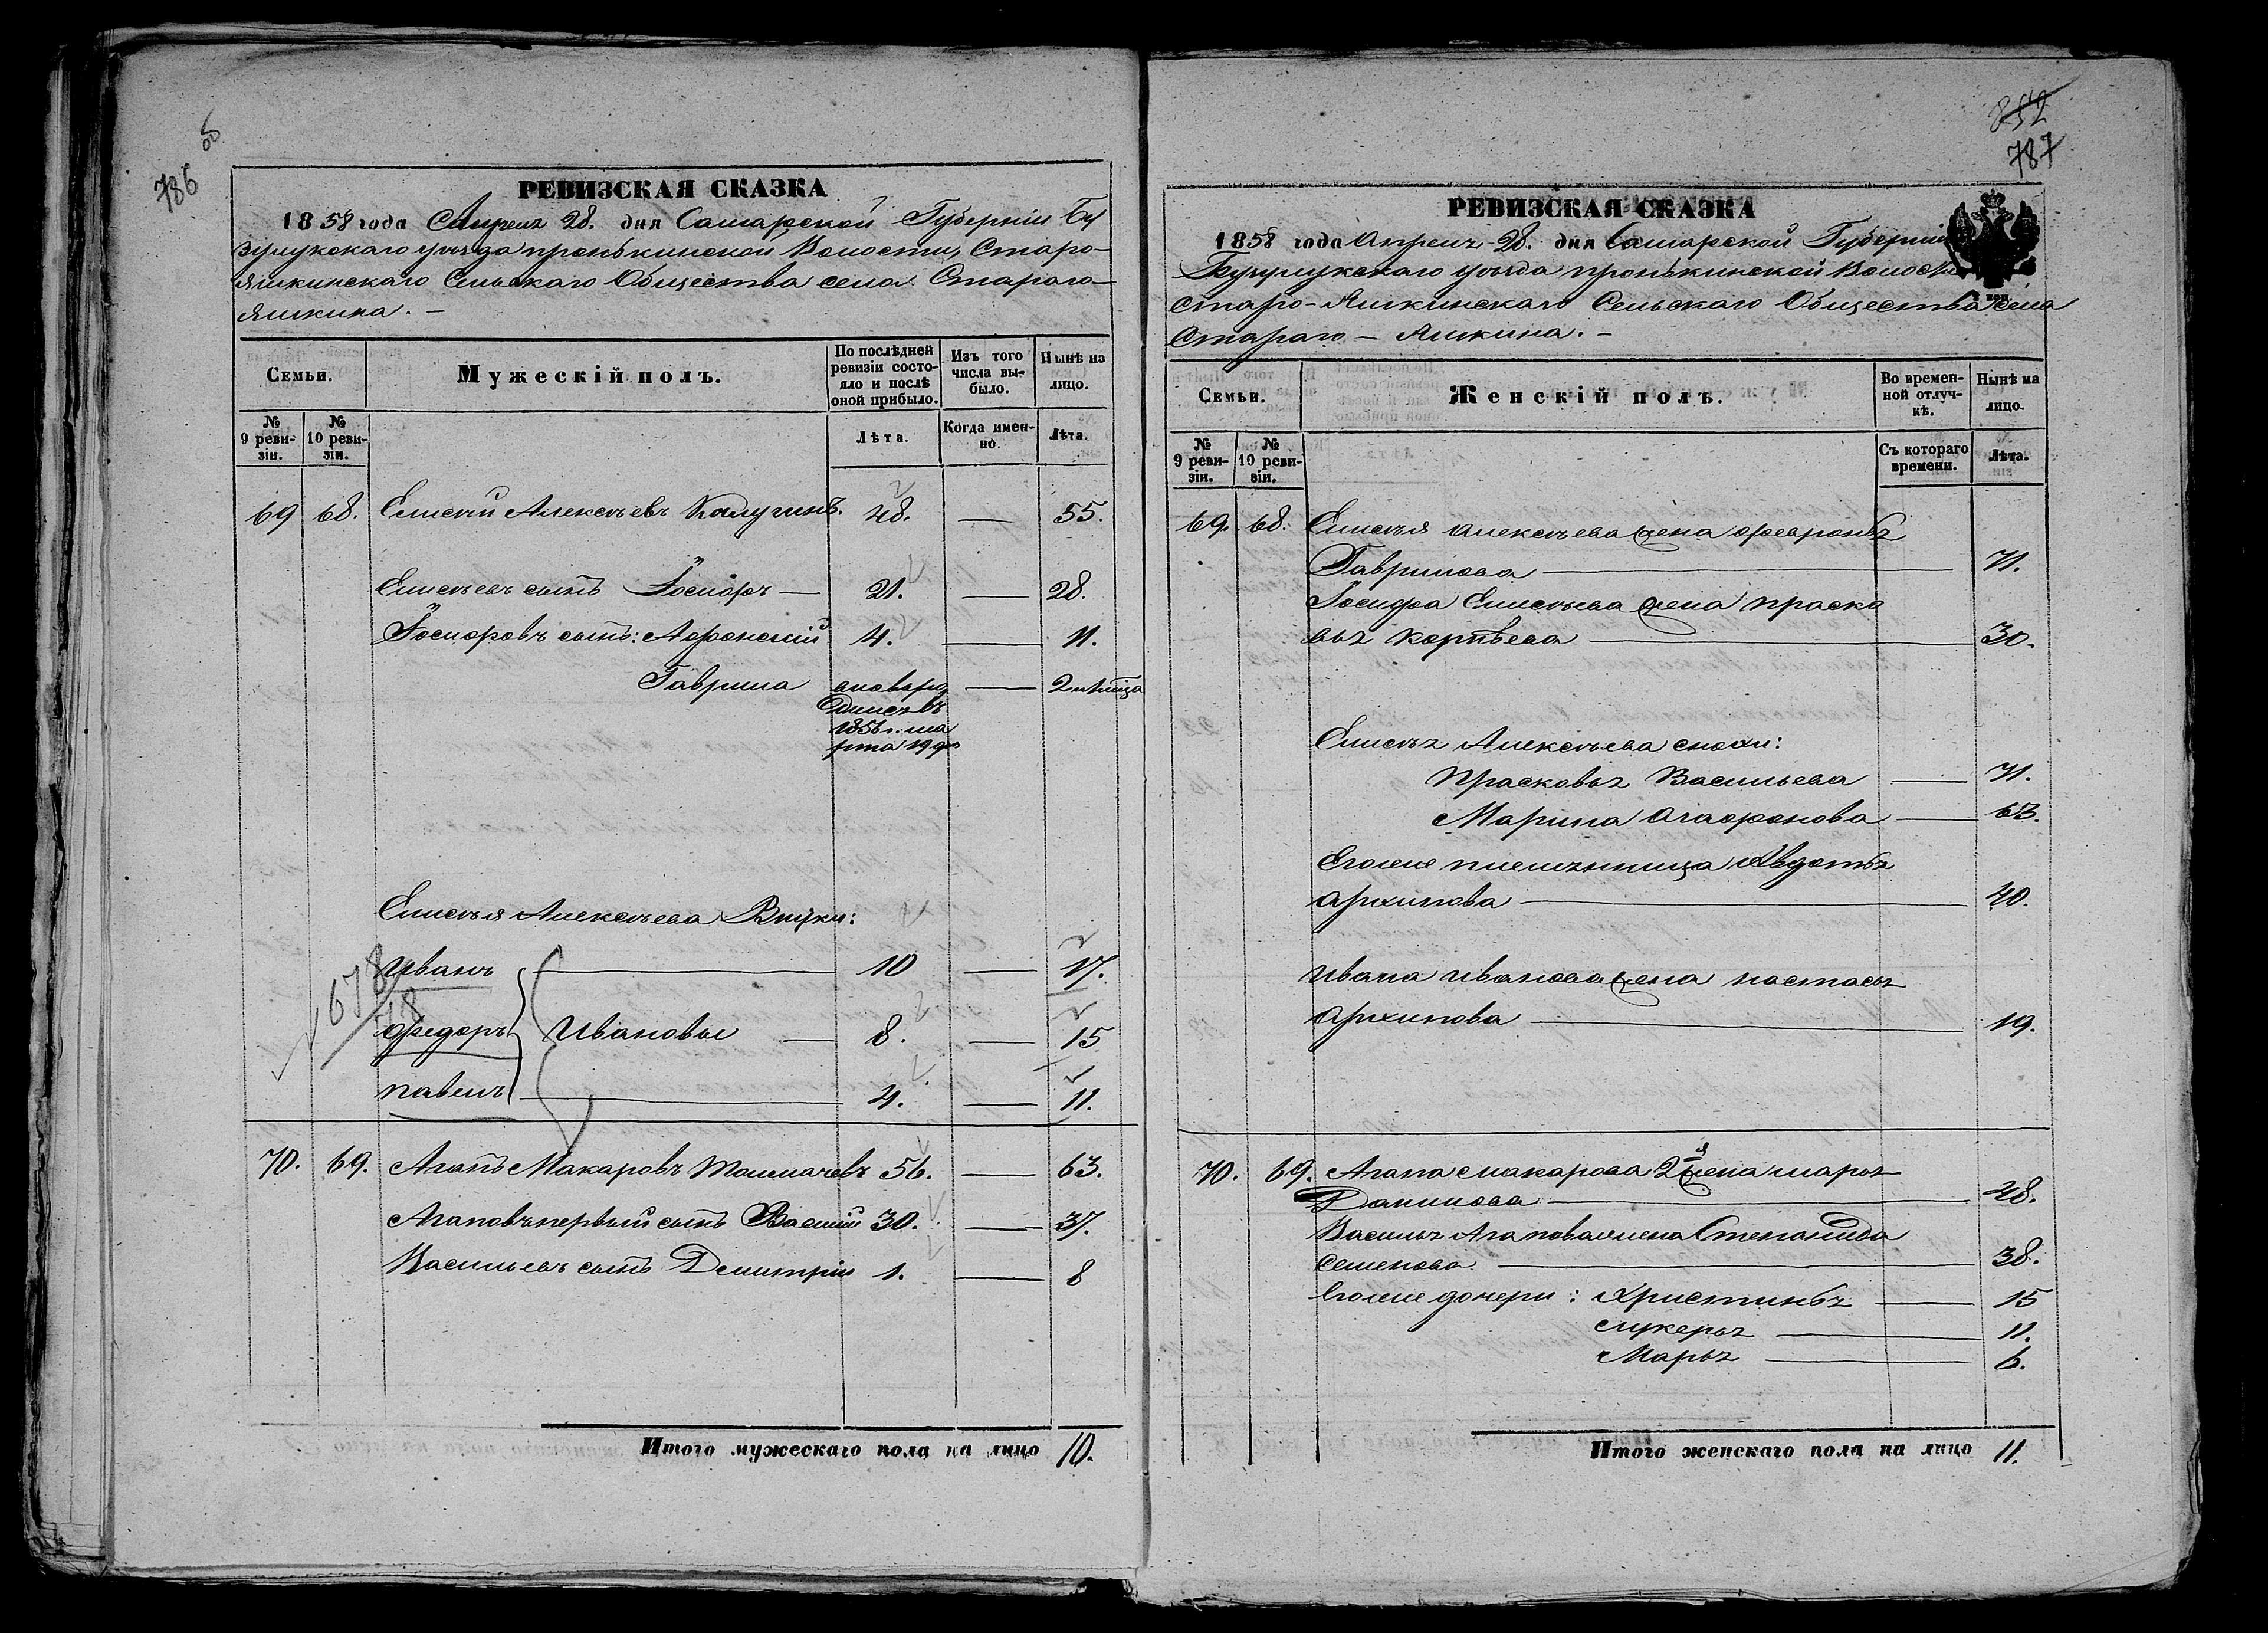 786
об
РЕВИЗСКАЯ СКАЗКА
1858 года Апреля 28. дня Самарской Губерніи Бу
зулукскаго уѣзда Пронькинской Волости, Старо-
Яшкинскаго Сельскаго Общества села Стараго-
Яшкина. –
Семьи.
Мужескій полъ.
По послѣдней ревизіи состояло и послѣ оной прибыло.
Изъ того числа выбыло.
Нынѣ на лицо.
№ 9 ревизіи.
№ 10 ревизіи.
Лѣта.
Когда именно.
Лѣта.
69 68. Елисѣй Алексѣевъ Калугинъ. 48. — 55.
Елисѣевъ сынъ Іосифъ — 21. — 28.
Іосифовъ сынъ: Афонасій 4. — 11.
Гаврила — 2 мѣсяца
1858 г. ма
рта 19 дня
Елисѣя Алексѣева Внуки:
Иванъ — 10 — 17.
678
718
Федоръ Ивановы — 8. — 15
Павелъ — 4. — 11.
70. 69. Агапъ Макаровъ Толмачевъ 56. — 63.
Агаповъ первый сынъ Василій 30. — 37.
Васильевъ сынъ Дмитрій 1. — 8
Итого мужескаго пола на лицо 10.
852
787
РЕВИЗСКАЯ СКАЗКА
1858 года Апреля 28. дня Самарской Губерніи
Бузулукскаго уѣзда Пронькинской Волости
Старо-Яшкинскаго Сельскаго Общества села
Стараго – Яшкина. –
Семьи.
Женскій полъ.
Во временной отлучкѣ.
Нынѣ на лицо.
№ 9 ревизіи.
№ 10 ревизіи.
Съ котораго времени.
Лѣта.
69. 68. Елисѣя Алексѣева жена Февронья
Гаврилова — 71.
Іосифа Елисѣева жена Праско
вья — 30.
Елисѣя Алексѣева снохи:
Прасковья Васильева — 71.
Марина Агафонова — 63.
Его же племянница Авдотья
Архипова — 40.
Ивана Иванова жена Настасья
Архипова — 19.
70. 69. Агапа Макарова 2я жена Марья
Данилова — 48.
Василья Агапова жена Степанида
Семенова — 38.
Его же дочери: Христинья — 15
Лукерья — 11.
Марья — 6.
Итого женскаго пола на лицо 11.